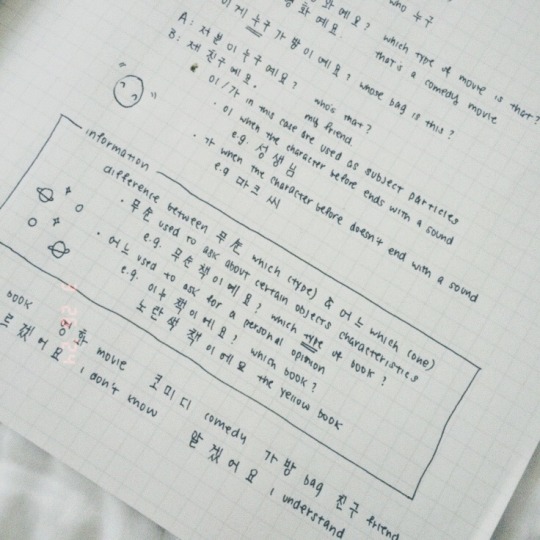 영화 예요? which type of movie is that?
영화 예요. that's a comedy movie
이게 누구 가방이예요? whose bag is this?
A: 저분이 누구예요? who's that?
B: 제 친구예요. my friend.
이/가 in this case are used as subject particles
· 이 when the character before ends with a sound
e.g. 성생님
· 가 when the character before doesn't end with a sound
e.g 마크 씨
information
difference between 무슨 which (type) & 어느 which (one)
· 무슨 used to ask about certain objects characteristics
e.g. 무슨 책이예요? which type of book?
· 어느 used to ask for a personal opinion
e.g. 어느 책이예요? which book?
노란색 책이예요 the yellow book
book 영화 movie 코미디 comedy 가방 bag 친구 friend
르겠어요 i don't know 알겠어요 i understand